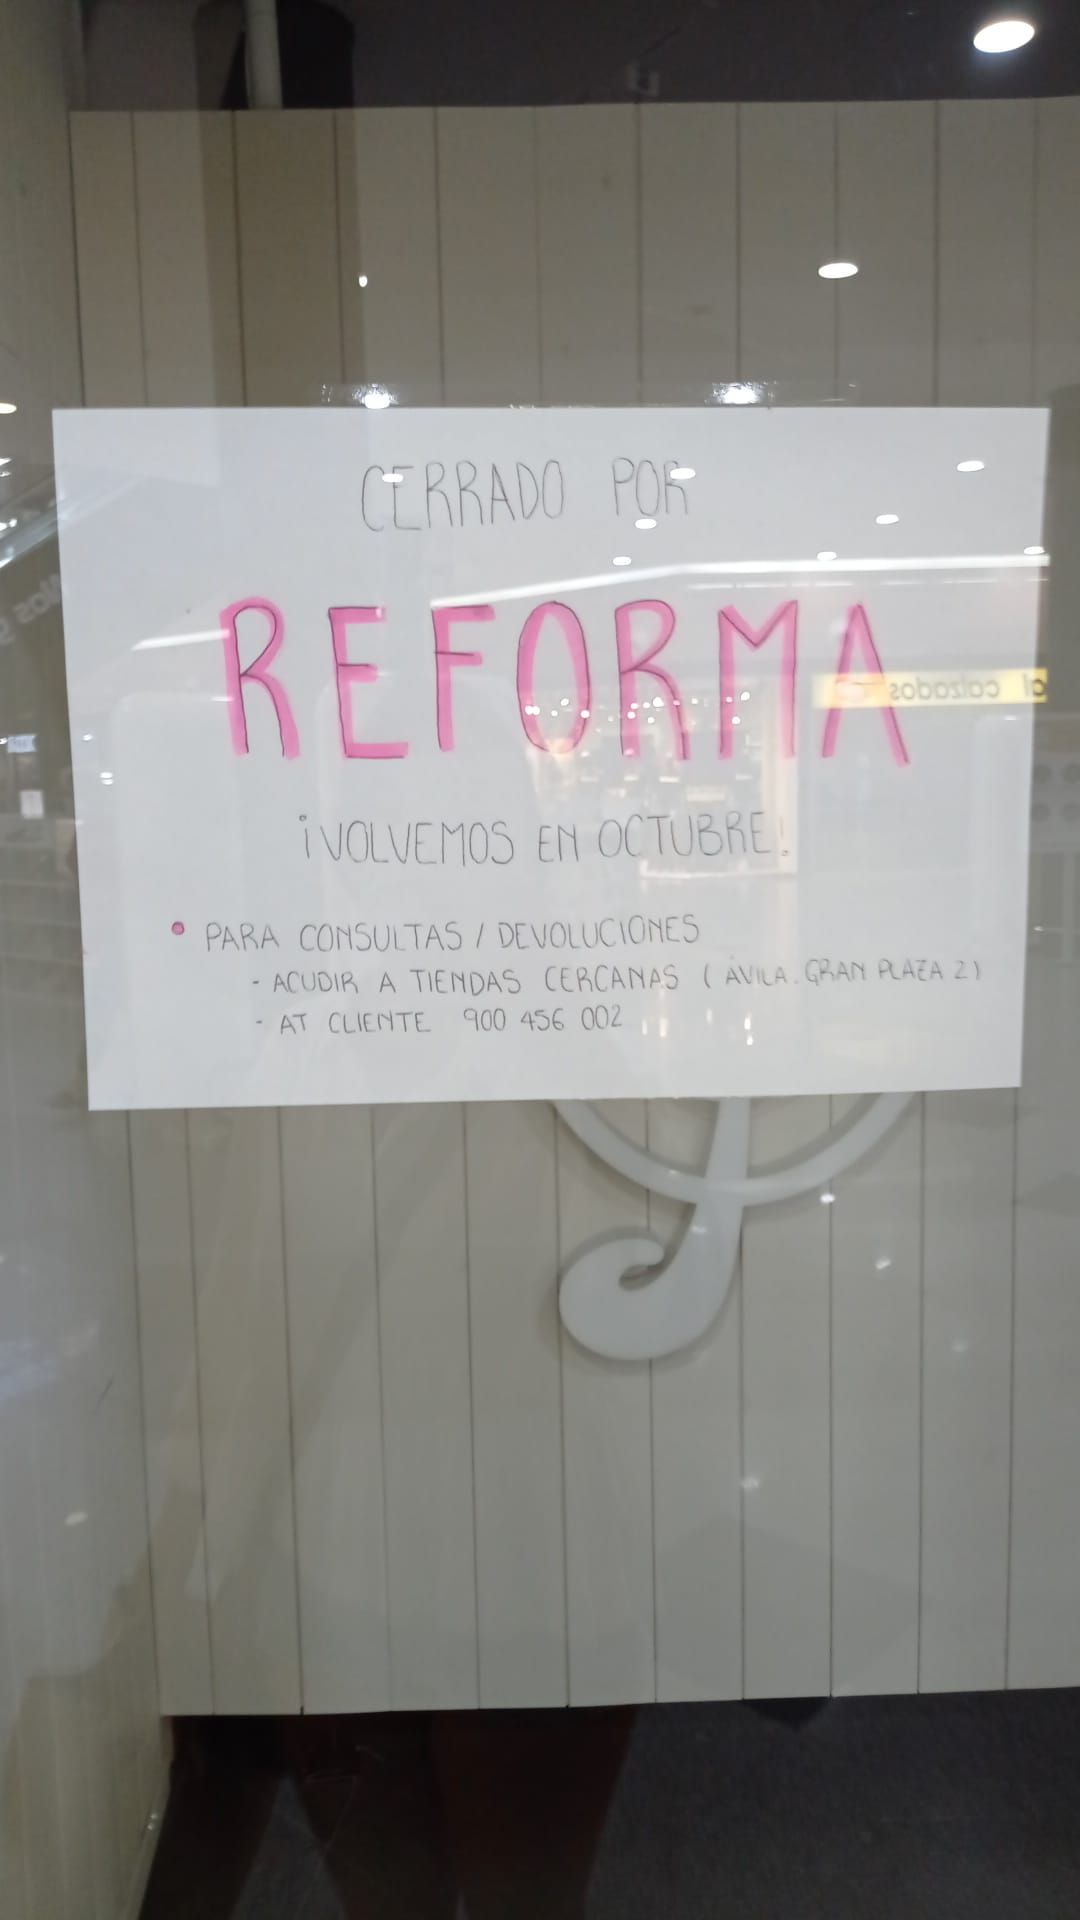 CERRADO POR
REFORMA
¡VOLVEMOS EN OCTUBRE!
• PARA CONSULTAS / DEVOLUCIONES
- ACUDIR A TIENDAS CERCANAS (ÁVILA. GRAN PLAZA 2)
- AT CLIENTE 900 456 002
calzados